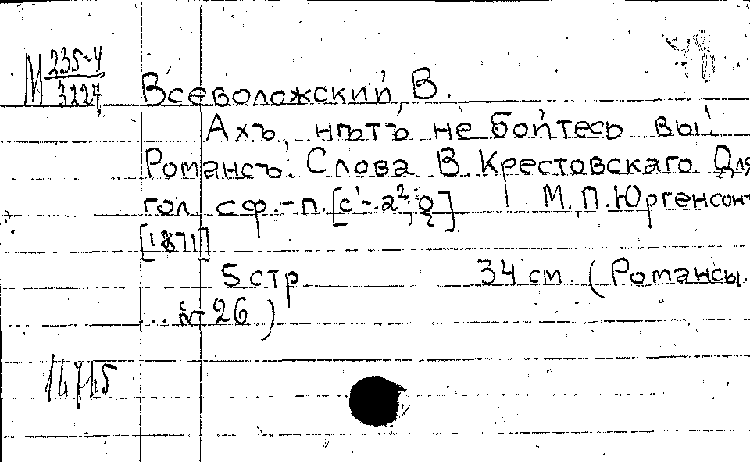 М 235-4
3227
Всеволожский, В.
Ахъ, нѣтъ не бойтесь вы!
Романсъ. Слова В. Крестовскаго. Для
гол. с ф.-п. [c¹-a²; g] М., П. Юргенсонъ
[1871]
5 стр. 34 см. (Романсы
... № 26)